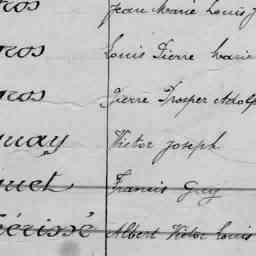 ros Jean Marie Louis J
ros Louis Pierre Marie
ros Pierre Prosper Adolp
uay Victor Joseph
uet Francis Guy
érissé Albert Victor Louis